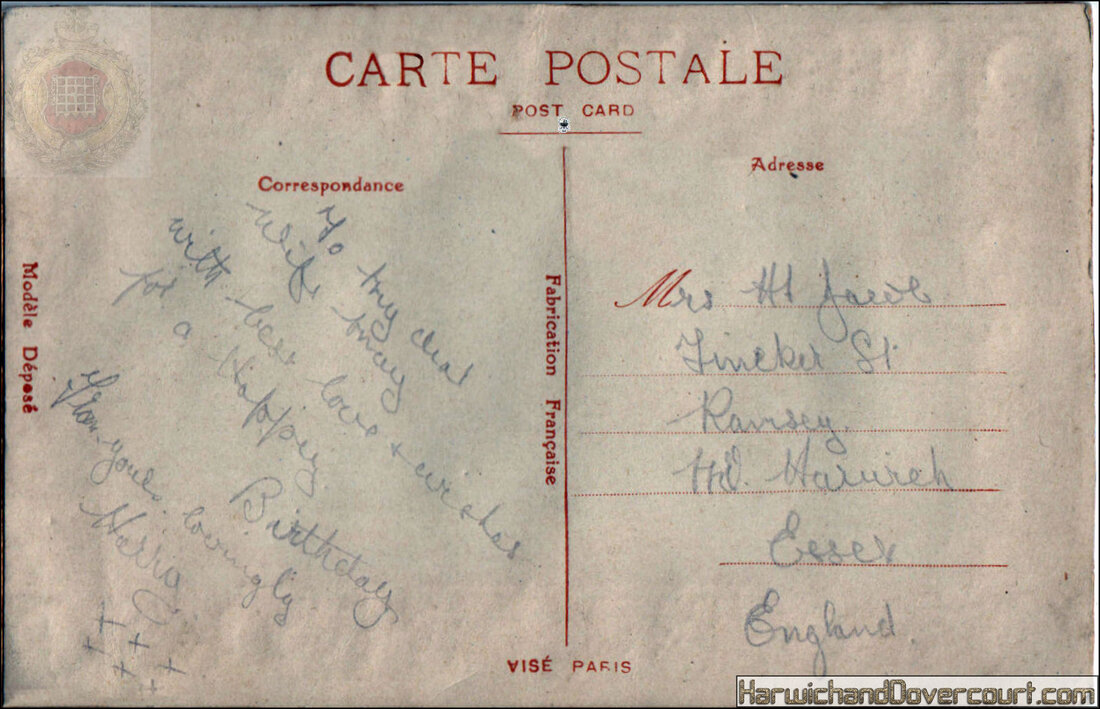 CARTE POSTALE
POST CARD
Correspondance
Adresse
Modèle Déposé
Fabrication Française
To my dear
Wife May
with best love & wishes
for
a Happy
Birthday
From yours lovingly
Harry
Mrs H Jacob
St
Ramsey
Harwich
Essex
England.
VISÉ PARIS
HarwichandDovercourt.com